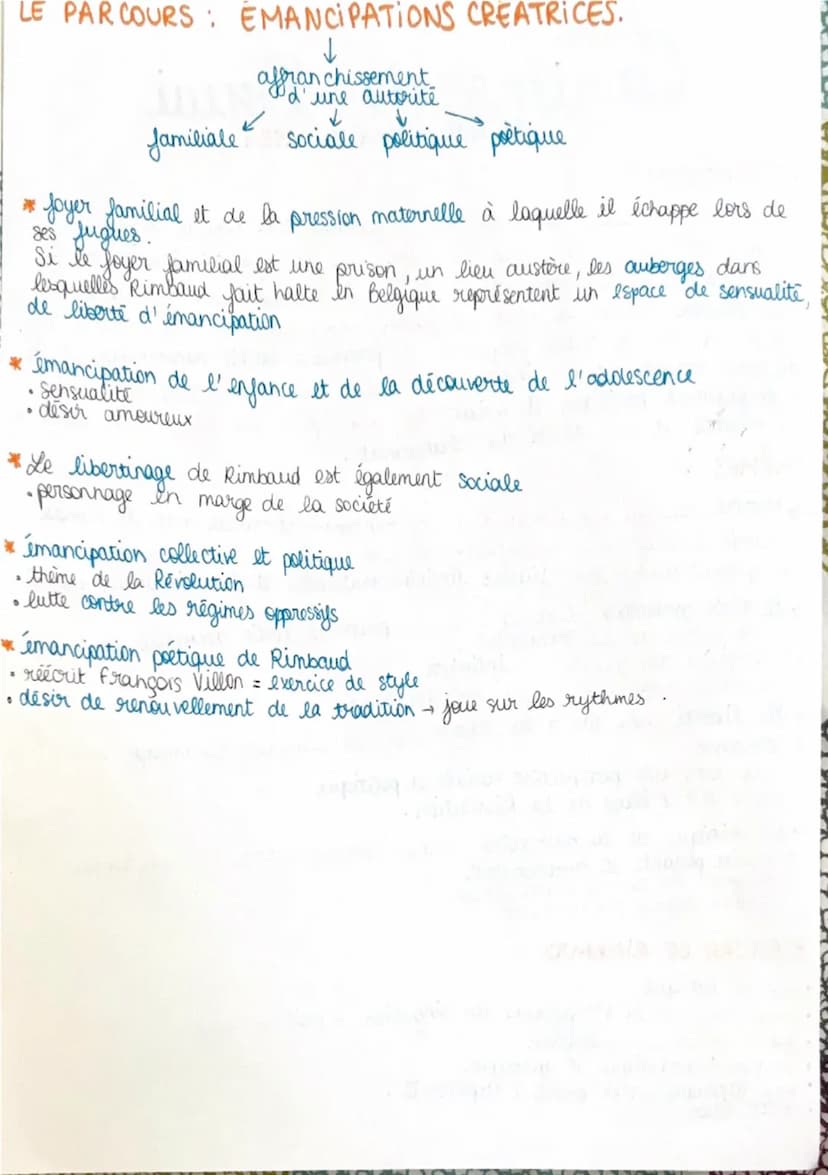 LE PARCOURS : ÉMANCIPATIONS CRÉATRICES.
↓
affranchissement
d'une autorité
familiale sociale politique poètique
* foyer familial et de la pression maternelle à laquelle il échappe lors de
ses fugues.
Si le foyer familial est une prison, un lieu austère, les auberges dans
lesquelles Rimbaud fait halte en Belgique représentent un espace de sensualité,
de liberté d'émancipation
* émancipation de l'enfance et de la découverte de l'adolescence
• sensualité
• désir amoureux
* Le libertinage de Rimbaud est également sociale
• personnage en marge de la société
* émancipation collective et politique
• thème de la Révolution
• lutte contre les régimes oppressifs
* émancipation poétique de Rimbaud
• réécrit François Villon = exercice de style
• désir de renouvellement de la tradition → joue sur les rythmes.